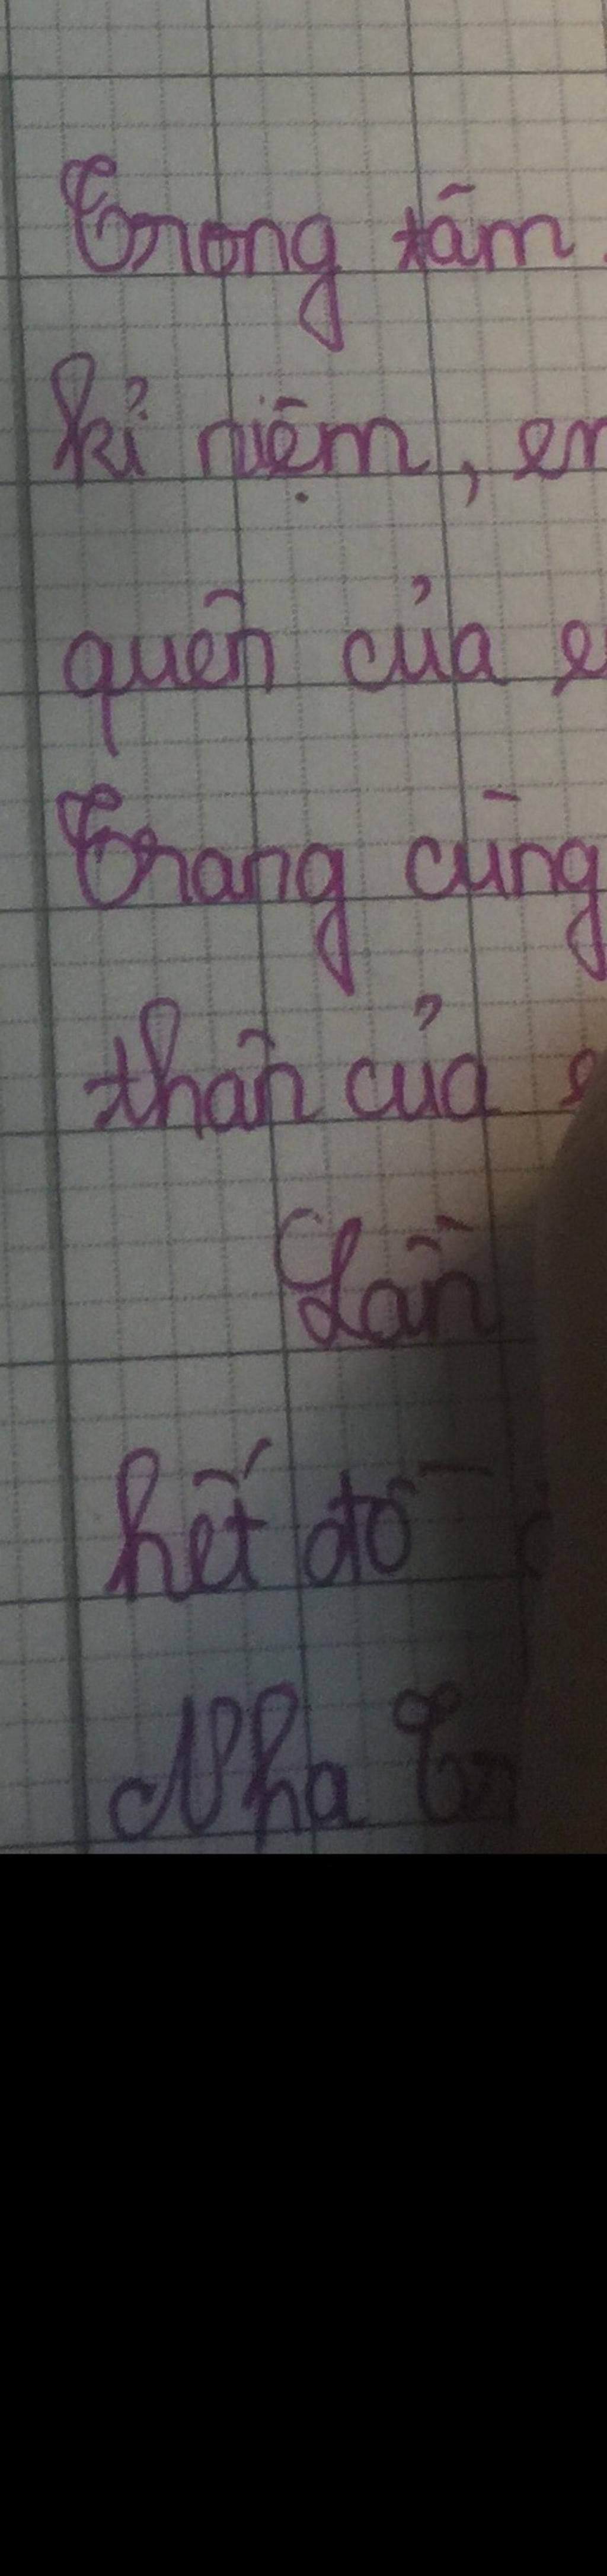 Trong tâm
kỉ niệm, em
quên của e
Trang cùng
thân của e
Lần
hết đồ
Nha Tr